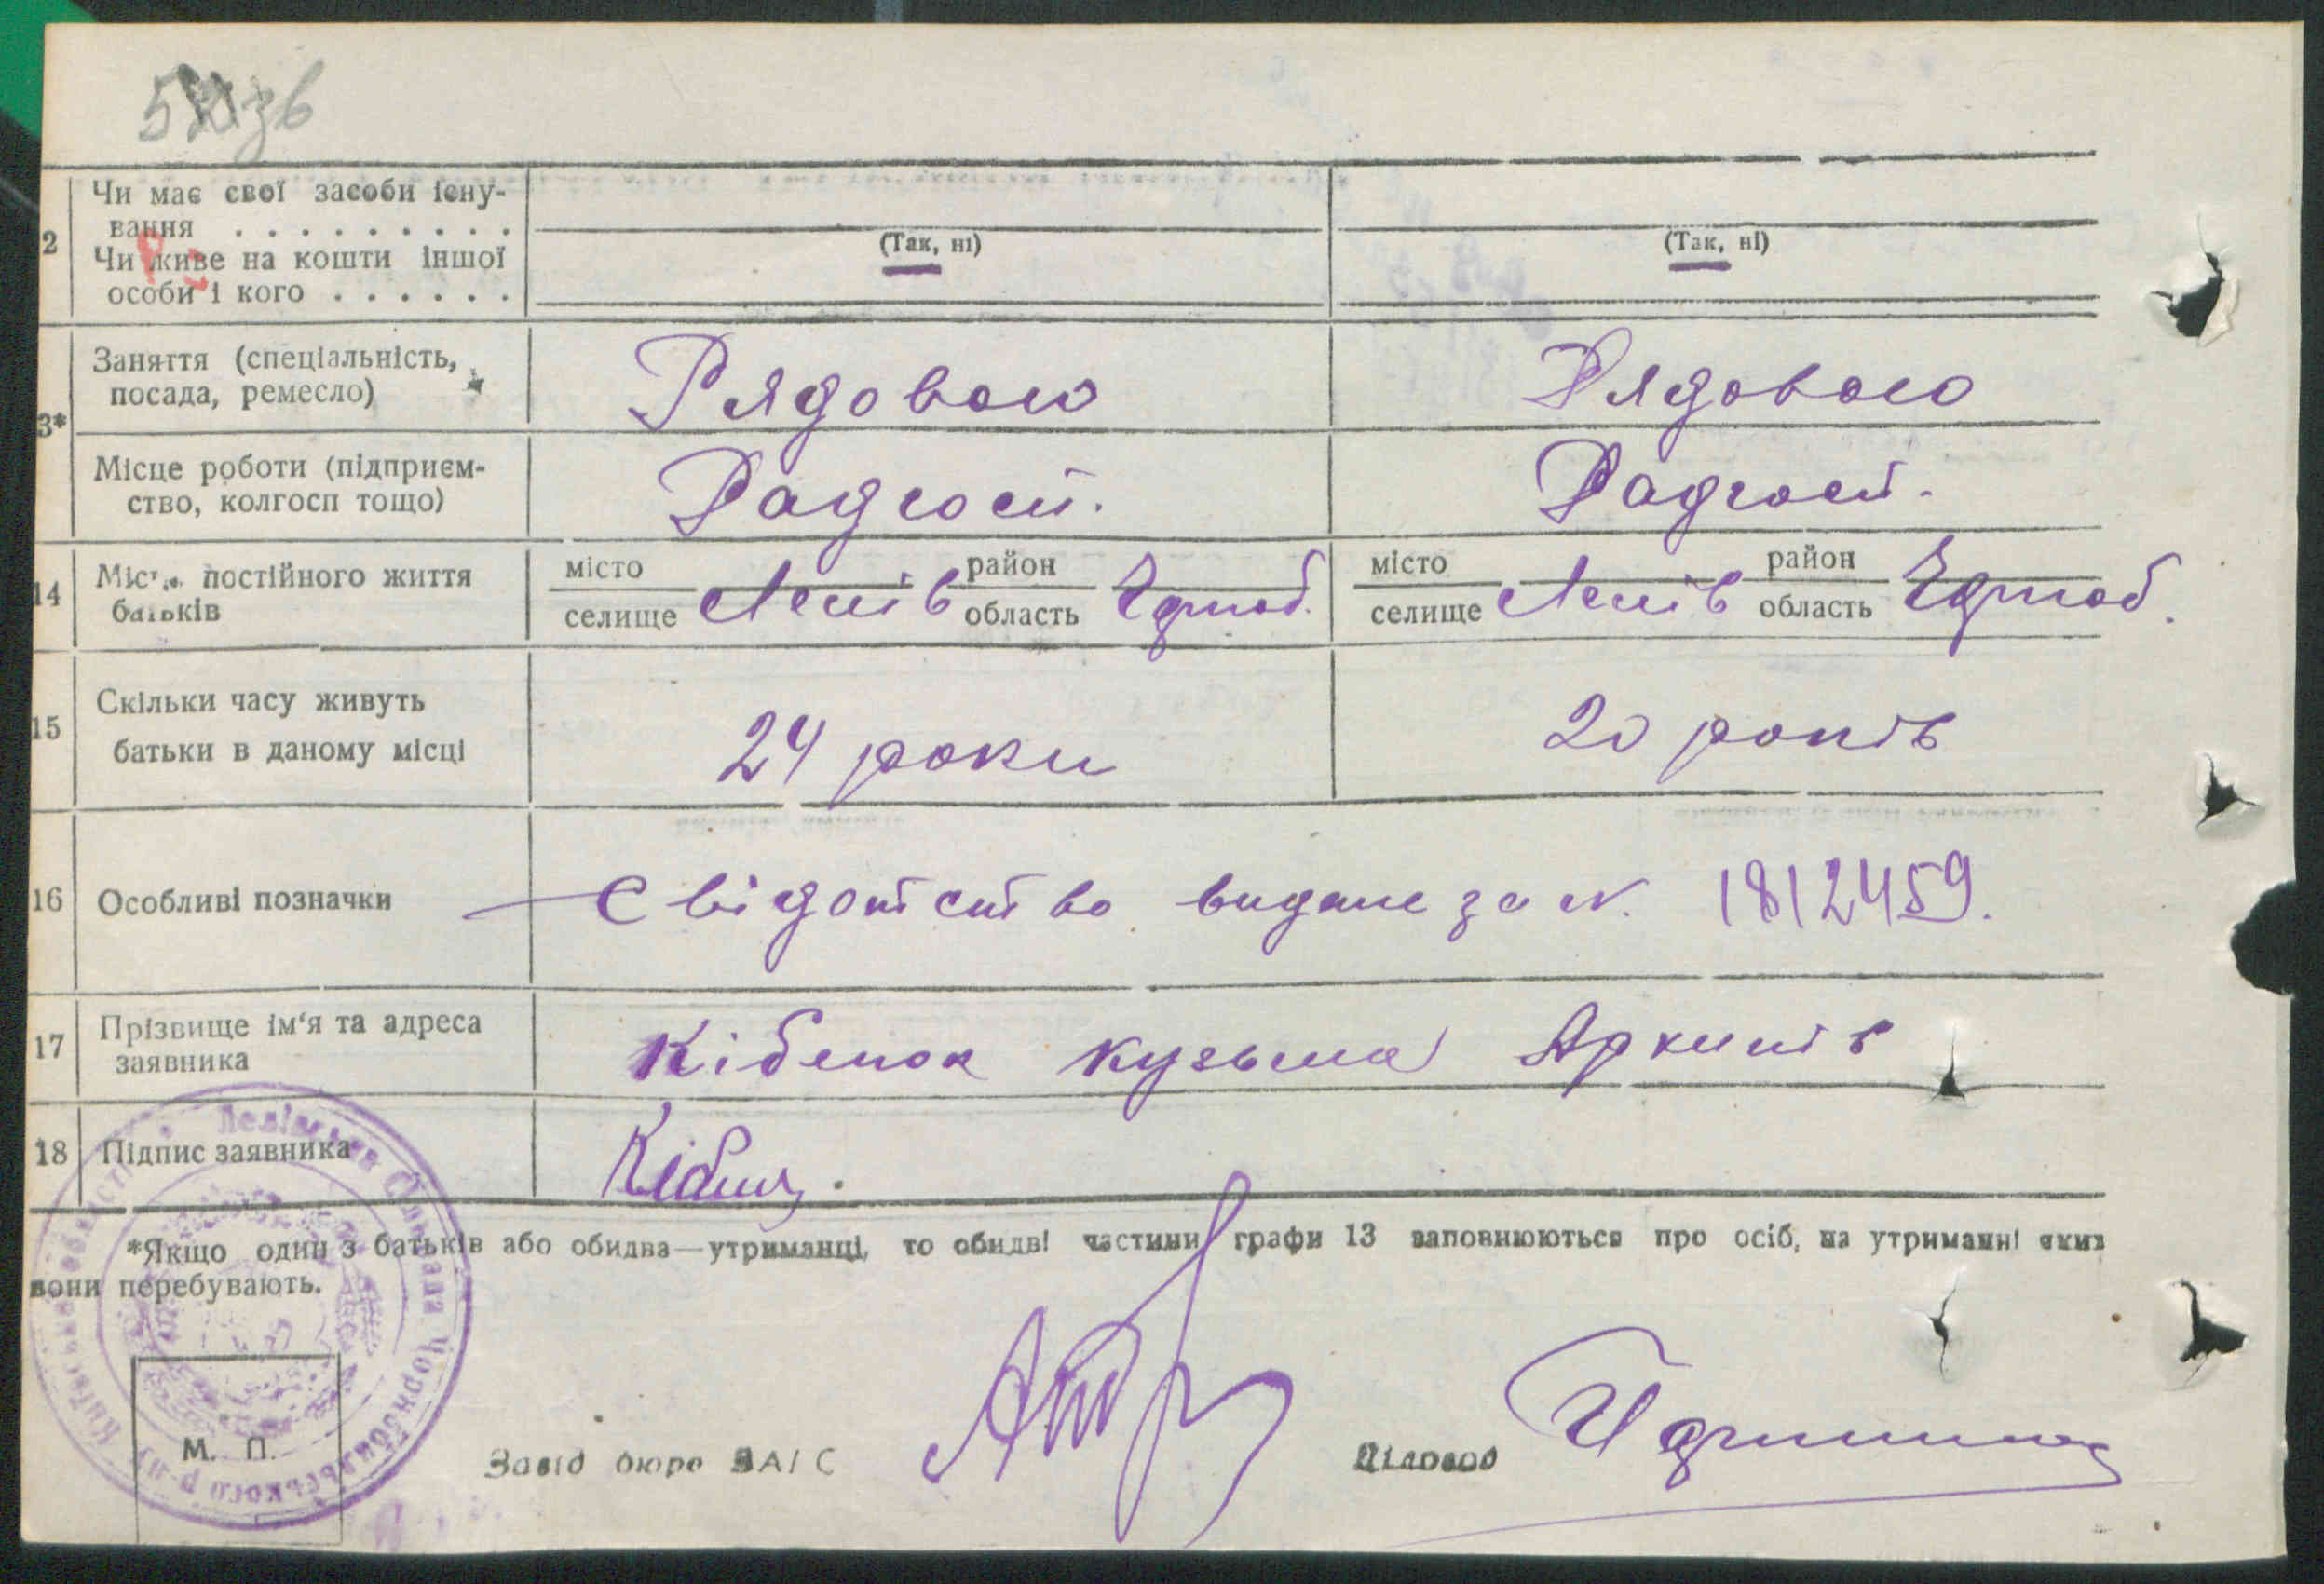 2
Чи має свої засоби існу-
вання . . . . . . . . .
Чи живе на кошти іншої
особи і кого . . . . . .
(Так, ні)
(Так, ні)
3*
Заняття (спеціальність,
посада, ремесло)
Рядовою
Рядового
Місце роботи (підприєм-
ство, колгосп тощо)
Радгосп.
Радгосп.
14
Місце постійного життя
батьків
місто
селище
Лелів
район
область
місто
селище
Лелів
район
область
15
Скільки часу живуть
батьки в даному місці
24 роки
20 років
16
Особливі позначки
Свідотство видане за N. 1812459.
17
Прізвище ім'я та адреса
заявника
Кібенок Кузьма Архипів
18
Підпис заявника
*Якщо один з батьків або обидва—утриманці, то обидві частини графи 13 заповнюються про осіб, на утриманні яких
вони перебувають.
М. П.
Завід бюро ЗАГС
Діловод